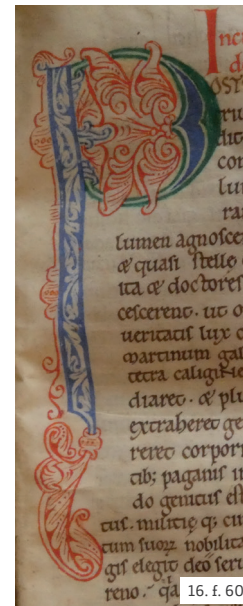 Inc
d
P OST
riu
dit
cor
lu
ra
lumen agnosce
& quasi stelle
ita & doctores
cescerent. ut o
veritatis lux c
martinum gal
tetra caligine
diaret. & plu
extraheret ge
reret corpori
tib; paganis
do genitus el
tus. militię q; cu
cum suoꝝ nobilita
gis elegit deo seri
reno. qa
16. f. 60